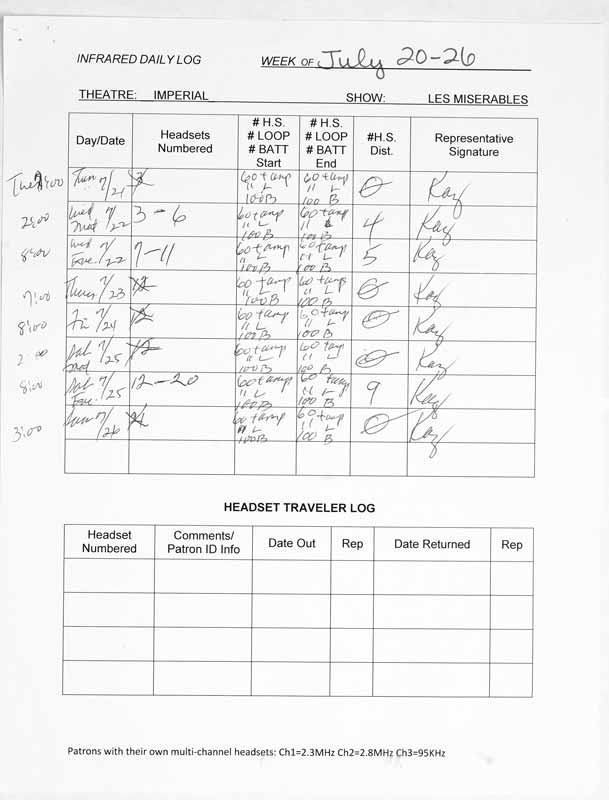 INFRARED DAILY LOG WEEK OF July 20-26
THEATRE: IMPERIAL SHOW: LES MISERABLES
Day/Date Headsets Numbered # H.S. # LOOP # BATT Start # H.S. # LOOP # BATT End #H.S. Dist. Representative Signature
7/21 60 + amp " L 100 B 60 + amp " L 100 B 0 Kay
2:00 Wed Mat 7/22 3-6 60 + amp " L 100 B 60 + amp " L 100 B 4 Kay
8:00 Wed Eve 7/22 7-11 60 + amp " L 100 B 60 + amp " L 100 B 5 Kay
7:00 Thurs 7/23 60 + amp " L 100 B 60 + amp " L 100 B 0 Kay
8:00 Fri 7/24 60 + amp " L 100 B 60 + amp " L 100 B 0 Kay
2:00 Sat 7/25 60 + amp " L 100 B 60 " L 100 B 0 Kay
8:00 Sat Eve 7/25 12-20 60 + amp " L 100 B 60 " L 100 B 9 Kay
3:00 Sun 7/26 60 + amp " L 100 B 60 + amp " L 100 B 0 Kay
HEADSET TRAVELER LOG
Headset Numbered Comments/ Patron ID Info Date Out Rep Date Returned Rep
Patrons with their own multi-channel headsets: Ch1=2.3MHz Ch2=2.8MHz Ch3=95KHz